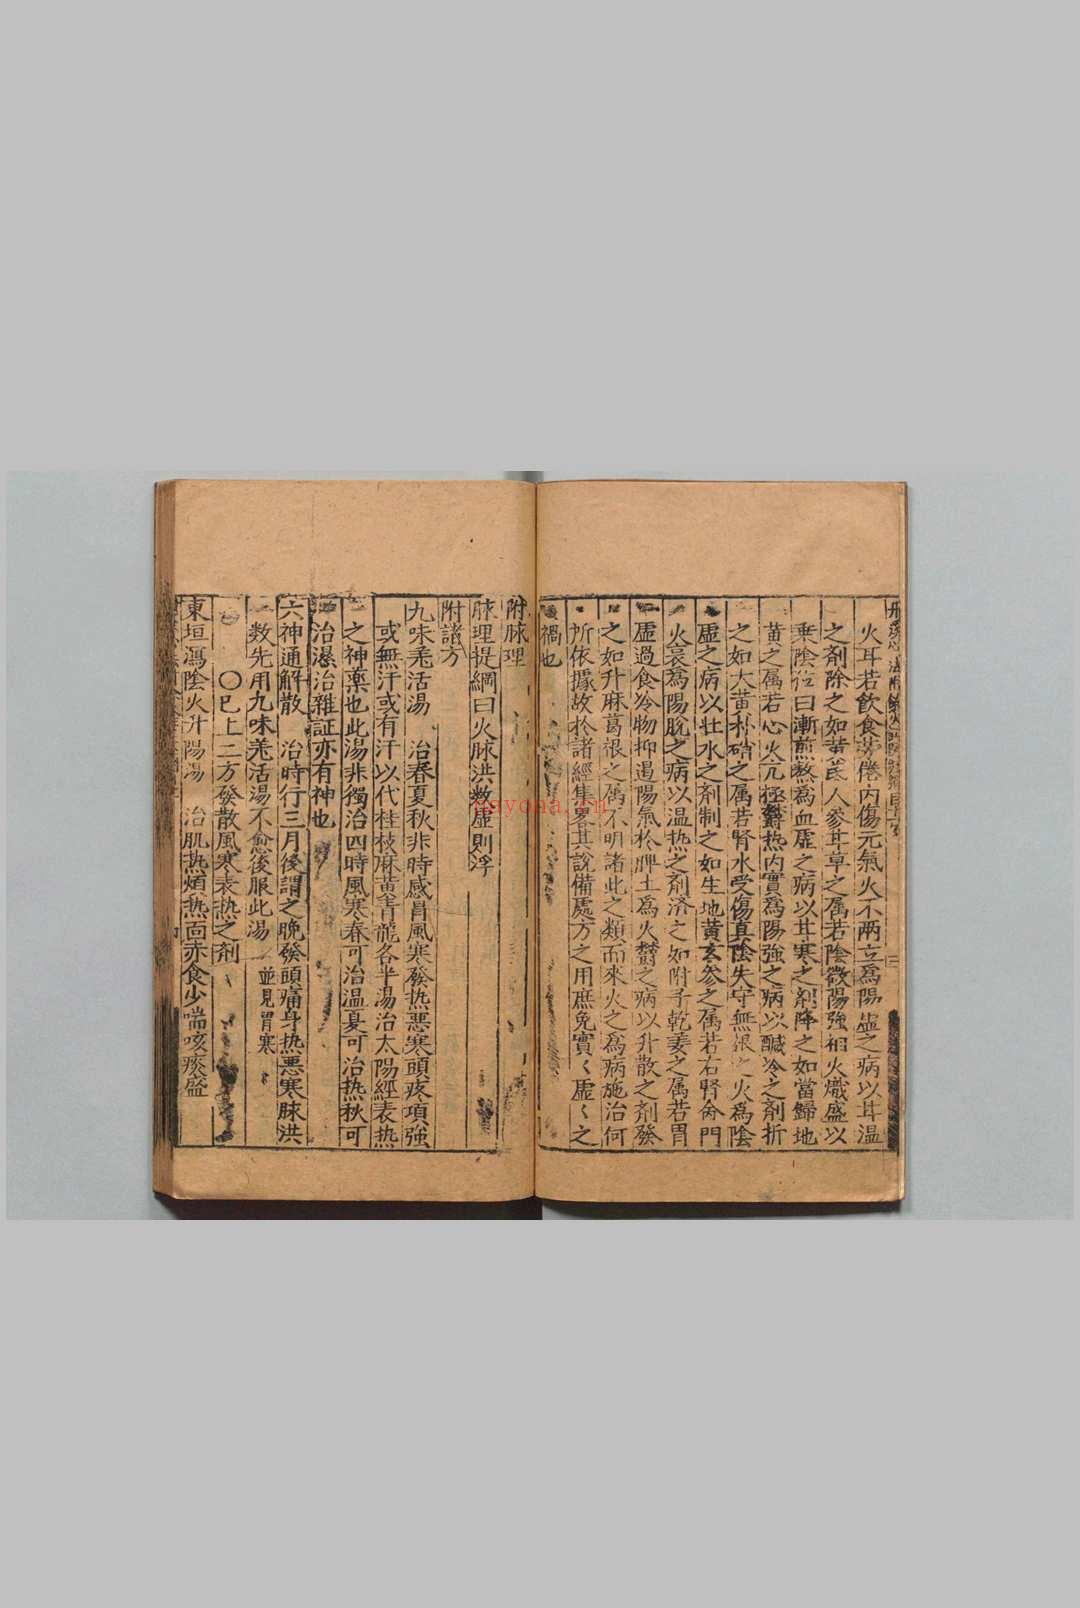 火耳若飲食勞倦內傷元氣火不兩立爲陽虛之病以甘温
之劑除之如黃芪人參甘草之属若陰微陽強相火熾盛以
乗陰位曰漸煎熬爲血虛之病以甘寒之劑降之如當歸地
黃之属若心火亢極欝热内實爲陽強之病以醎冷之劑折
之如大黃朴硝之属若腎水受傷真陰失守無根之火爲陰
虛之病以壮水之劑制之如生地黃玄參之属若右腎命門
火衰爲陽脫之病以温热之劑済之如附子乾姜之属若胃
虛過食冷物抑遏陽氣於脾土爲火欝之病以升散之劑發
之如升麻葛根之属不明諸此之類而來火之爲病施治何
所依據故於諸經集畧其說備處方之用庶免實〻虛〻之
禍也
附脉理
脉理提綱曰火脉洪数虛則浮
附諸方
九味羌活湯 治春夏秋非時感冒風寒發热悪寒頭疼項強
或無汗或有汗以代桂枝麻黃青龍各半湯治太陽經表热
之神藥也此湯非獨治四時風寒春可治温夏可治热秋可
治濕治雜証亦有神也
六神通解散 治時行三月後謂之晚發頭痛身热悪寒脉洪
数先用九味羌活湯不愈後服此湯 並見胃寒
〇已上二方發散風寒表热之剤
東垣瀉陰火升陽湯 治肌热煩热面赤食少喘咳痰盛
nayona.cn